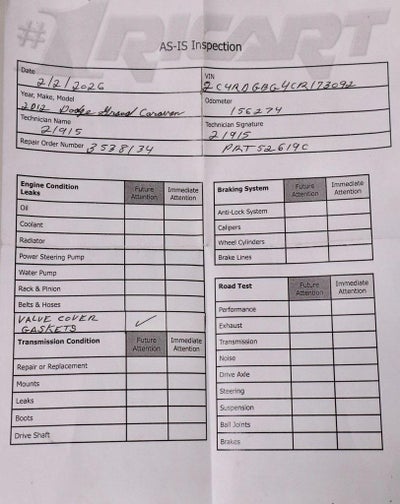 #1 RICART
AS-IS Inspection
Date
2/2/2026
VIN
2C4RDGBG4CR173092
Year, Make, Model
2012 Dodge Grand Caravan
Odometer
156274
Technician Name
21915
Technician Signature
21915
Repair Order Number 3538134
PRT52619C
Engine Condition
Leaks
Future Attention
Immediate Attention
Oil
Coolant
Radiator
Power Steering Pump
Water Pump
Rack & Pinion
Belts & Hoses
VALVE COVER
GASKETS ✓
Transmission Condition
Future Attention
Immediate Attention
Repair or Replacement
Mounts
Leaks
Boots
Drive Shaft
Braking System
Future Attention
Immediate Attention
Anti-Lock System
Calipers
Wheel Cylinders
Brake Lines
Road Test
Future Attention
Immediate Attention
Performance
Exhaust
Transmission
Noise
Drive Axle
Steering
Suspension
Ball Joints
Brakes